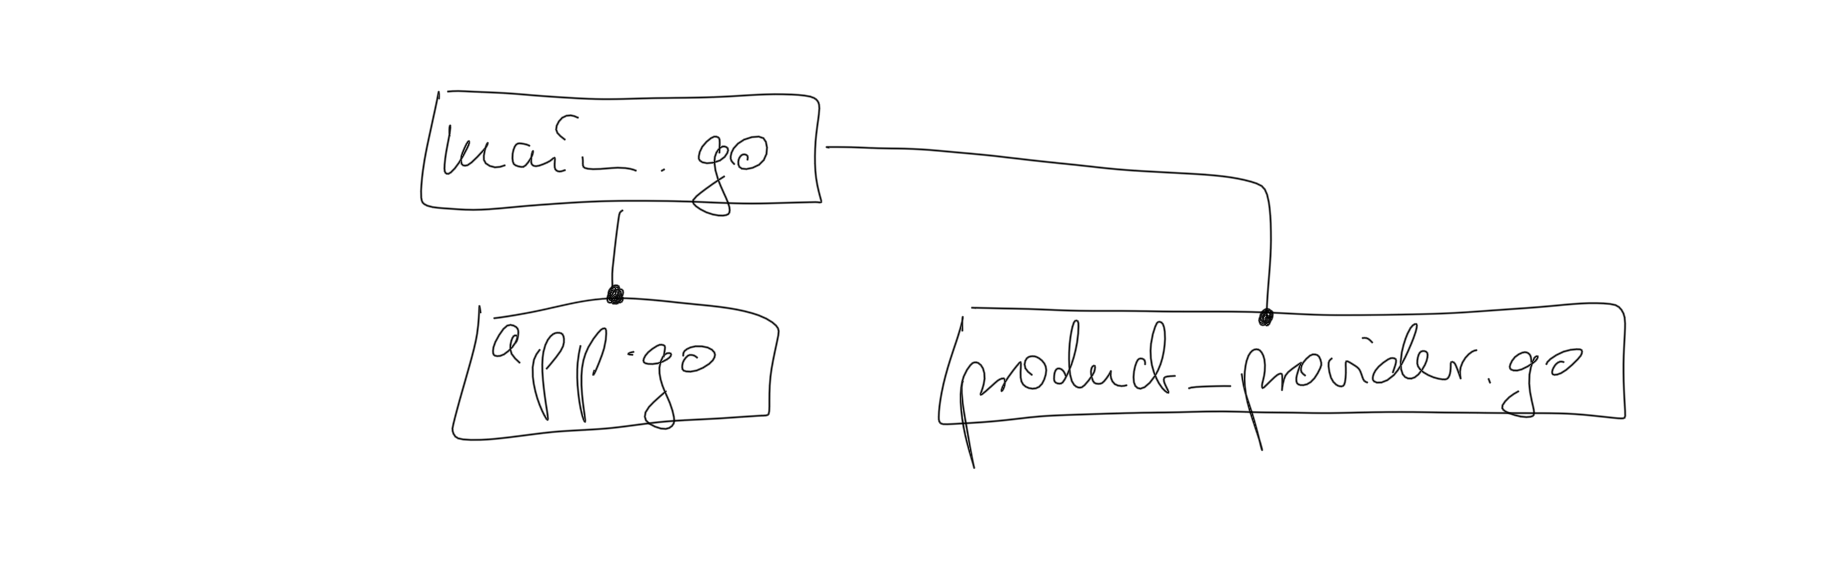 main.go
app.go
product_provider.go